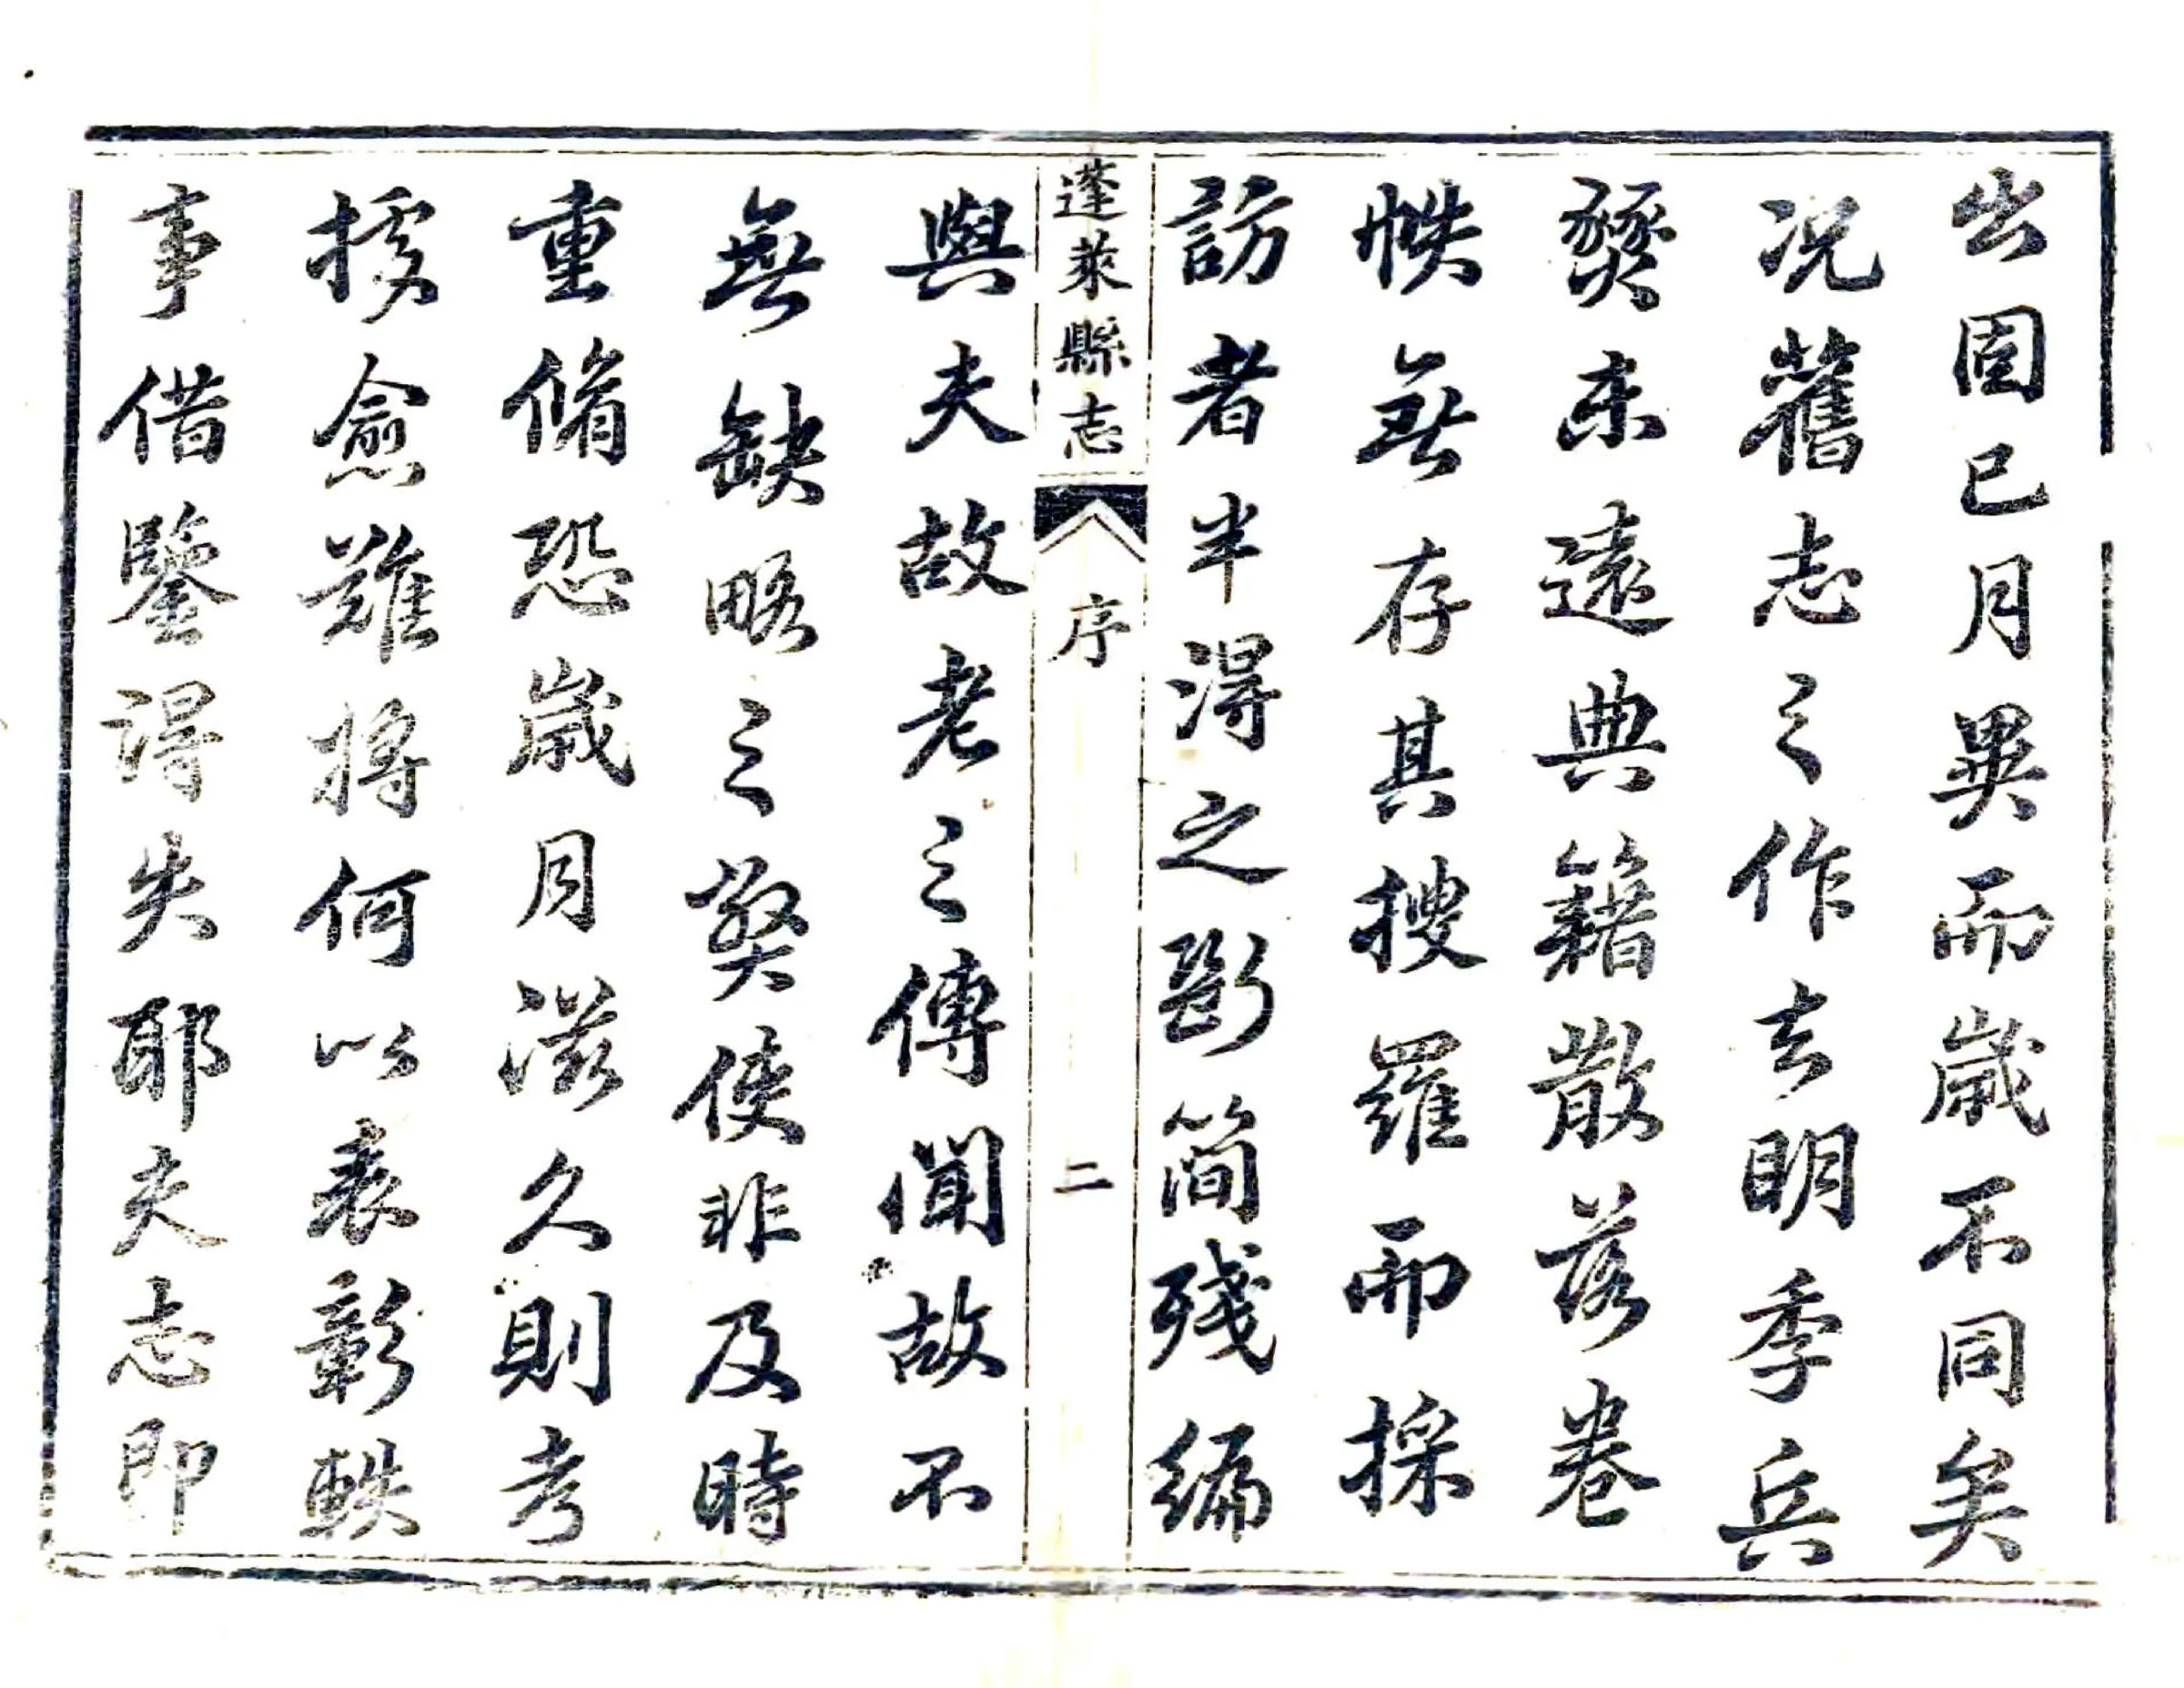 出固已月異而歲不同矣
况舊志之作去明季兵
燹未遠典籍散落卷
帙無存其搜羅而採
訪者半得之斷簡殘編
蓬萊縣志 序 二
與夫故老之傳聞故不
無缺略之獘使非及時
重脩恐歲月滋久則考
據愈難將何以表彰軼
事借鑒得失耶夫志即